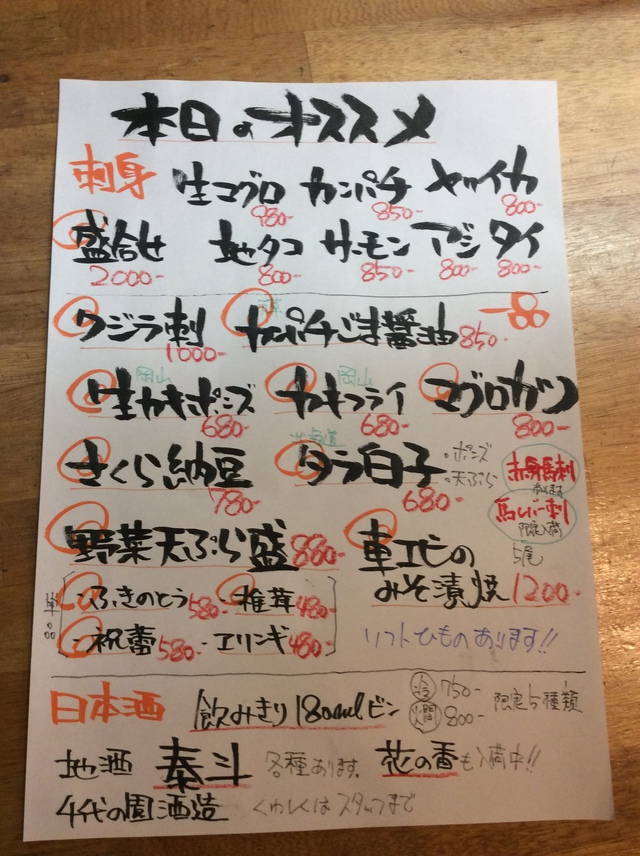 本日のオススメ
刺身 生マグロ 980- カンパチ 850- ヤリイカ 800-
盛合せ 2000- 地タコ 800- サーモン 850- アジ 800- タイ 800-
一品
クジラ刺 1000- カンパチごま醤油 850-
岡山 生カキポン酢 680- 岡山 カキフライ 680- マグロカツ 800-
さくら納豆 780- 北海道 タラ白子 680- ・ポンズ ・天ぷら
赤身馬刺 あります
馬レバー刺 限定入荷
野菜天ぷら盛 880- 車エビの 5尾
みそ漬焼 1200-
・ふきのとう 580- ・椎茸 480-
・祝蕾 580- ・エリンギ 480-
ソフトひものあります!!
日本酒 飲みきり180mlビン 冷 750- 燗 800- 限定5種類
地酒 泰斗 各種あります。 花の香も入荷中!!
千代の園酒造 くわしくはスタッフまで